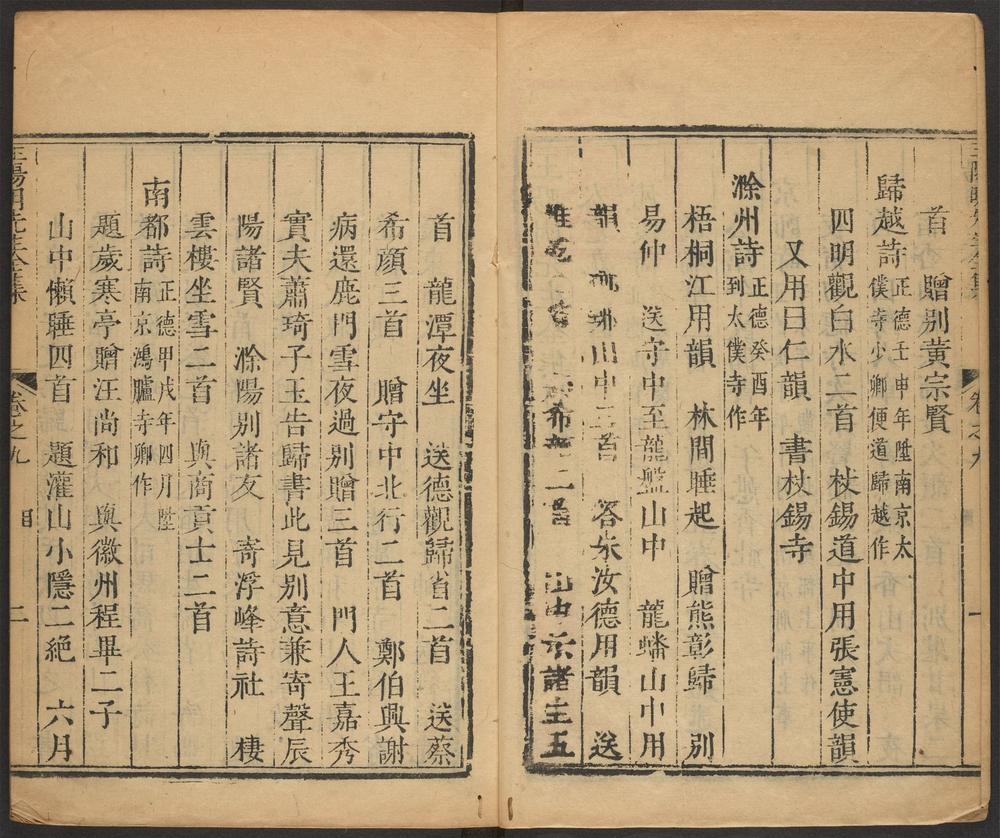 首　贈別黃宗賢
歸越詩 正德壬申年陞南京太
僕寺少卿便道歸越作
四明觀白水二首　杖錫道中用張憲使韻
又用曰仁韻　書杖錫寺
滁州詩 正德癸酉年
到太僕寺作
梧桐江用韻　林間睡起　贈熊彰歸　別
易仲　送守中至龍盤山中　龍蟠山中用
韻　瑯琊山中三首　答朱汝德用韻　送
惟乾二首　希　二首　山中示諸生五
卷之九　一
首　龍潭夜坐　送德觀歸省二首　送蔡
希顔三首　贈守中北行二首　鄭伯興謝
病還鹿門雪夜過別贈三首　門人王嘉秀
實夫蕭琦子玉告歸書此見別意兼寄聲辰
陽諸賢　滁陽別諸友　寄浮峰詩社　棲
雲樓坐雪二首　與商貢士二首
南都詩 正德甲戌年四月陞
南京鴻臚寺卿作
題歲寒亭贈汪尚和　與徽州程畢二子
山中懶睡四首　題灌山小隱二絶　六月
王陽明先生全集　卷之九　目　二